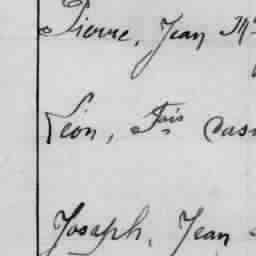 Pierre, Jean M
Léon, Fois Casi
Joseph, Jean